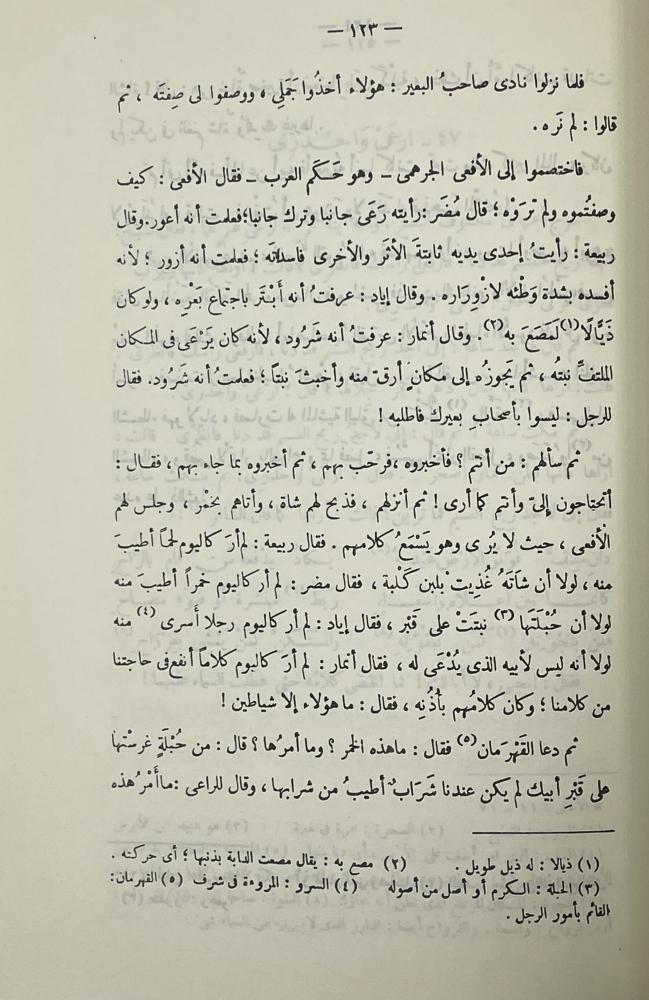 — ١٢٣ —
فلما نزلوا نادى صاحبُ البعير : هؤلاء أخذُوا جَمَلِى ، ووصفوا لى صِفتَه ، ثم
قالوا : لم نَره .
فاختصموا إلى الأفعى الجرهمى – وهو حَكَم العرب – فقال الأفعى : كيف
وصفتُموه ولم تَرَوْه ؛ قال مُضَر : رأيته رَعَى جانبا وترك جانبا؛فعلمت أنه أعور.وقال
ربيعة : رأيتُ إحدى يديه ثابتةَ الأثَر والأخرى فاسداتَه ؛ فعلمت أنه أزور ؛ لأنه
أفسده بشدة وَطْئه لازْوِرَاره . وقال إياد : عرفتُ أنه أَبْتَر باجتماع بَعْرِه ، ولوكان
ذَيَّالًا(١)لَمَصَعَ به(٢). وقال أنمار : عرفتُ أنه شَرُود ، لأنه كان يَرْعَى فى المكان
الملتفِّ نبتُه ، ثم يَجوزُه إلى مكانٍ أرقّ منه وأخبثَ نبتاً ؛ فعلمتُ أنه شَرُود. فقال
للرجل : ليسوا بأصحابِ بعيرك فاطلبه !
ثم سألهم : من أنتم ؟ فأخبروه ،فرحّب بهم ، ثم أخبروه بما جاء بهم ، فقال :
أتحتاجون إلىّ وأنتم كما أرى ! ثم أنزلهم ، فذبح لهم شاة ، وأتاهم بخمْر ، وجلس لهم
الأفعى ، حيث لا يُرى وهو يَسْمَعُ كلامهم . فقال ربيعة : لمأرَ كاليوم لحماً أطيبَ
منه ، لولا أن شاتَهُ غُذِيت بلبن كَلْبة ، فقال مضر : لم أر كاليوم خمراً أطيبَ منه
لولا أن حُبْلَتَها (٣) نبتَتْ على قَبْر ، فقال إياد : لم أر كاليوم رجلا أَسرى (٤) منه
لولا أنه ليس لأبيه الذى يُدْعَى له ، فقال أنمار : لم أرَ كاليوم كلاماً أنفع فى حاجتنا
من كلامنا ؛ وكان كلامُهم بأُذُنِه ، فقال : ما هؤلاء إلا شياطين !
ثم دعا القَهْرَمان(٥) فقال : ماهذه الخمر ؟ وما أمرُها ؟ قال : من حُبْلَةٍ غرستُها
على قَبْرِ أبيك لم يكن عندنا شَرَابٌ أطيبُ من شرابها ، وقال للراعى :ماأَمْرُهذه
(١) ذيالا : له ذيل طويل . (٢) مصع به : يقال مصعت الدابة بذنبها ؛ أى حركته .
(٣) الحبلة : الكرم أو أصل من أصوله (٤) السرو : المروءة فى شرف (٥) القهرمان:
القائم بأمور الرجل .